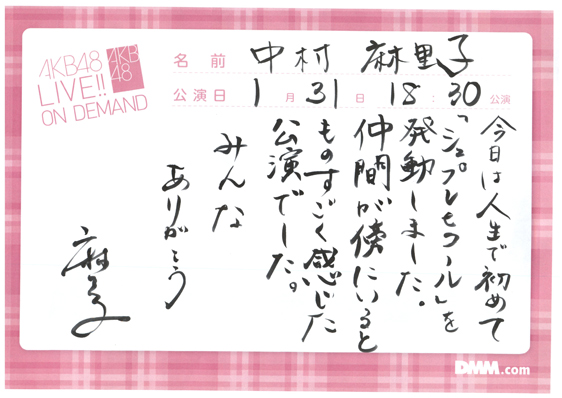 AKB48
LIVE!!
ON DEMAND
AKB
48
名前 中村 麻里子
公演日 1月31日 18:30公演
今日は人生で初めて
「シュプレヒコール」を
発動しました。
仲間が傍にいると
ものすごく感じた
公演でした。
みんな
ありがとう
麻里子
DMM.com